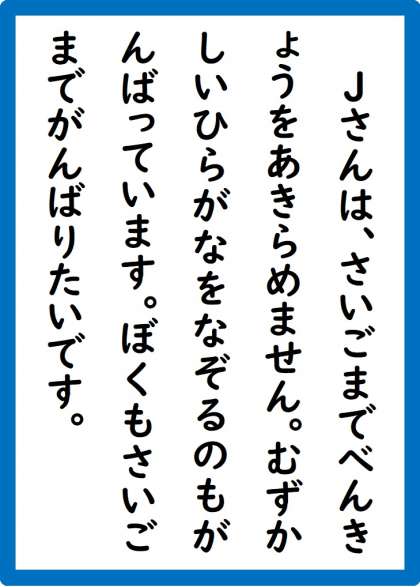 Jさんは、さいごまでべんき
ょうをあきらめません。むずか
しいひらがなをなぞるのもが
んばっています。ぼくもさいご
までがんばりたいです。